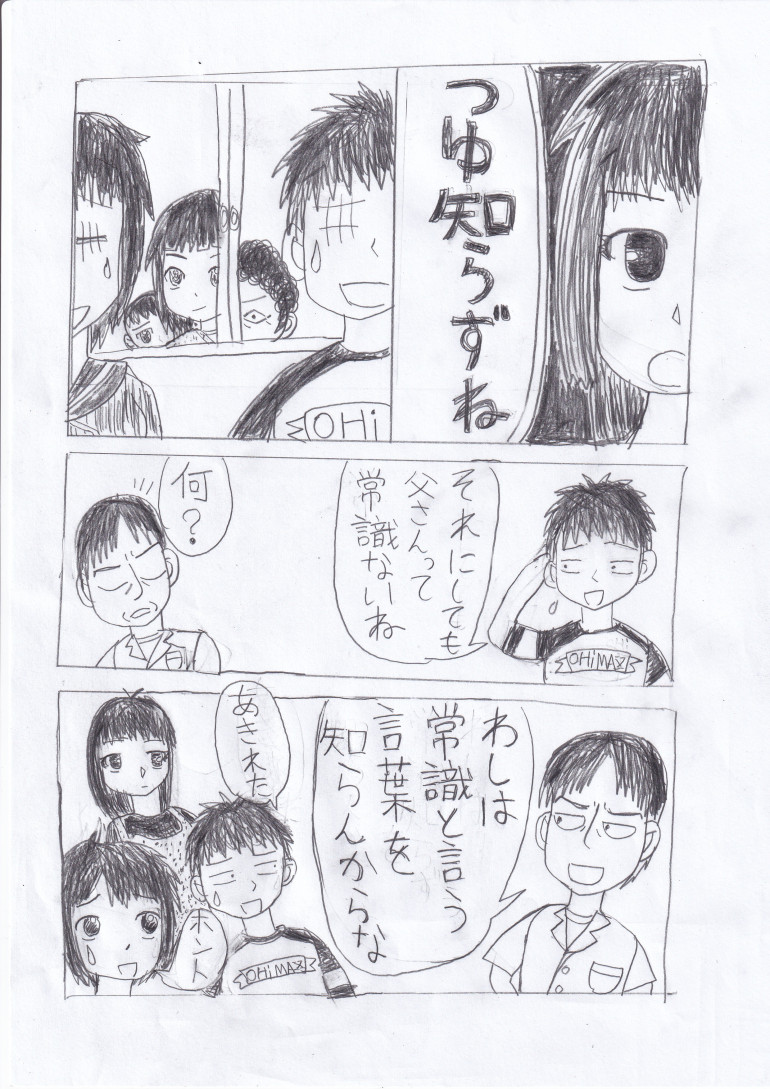 つゆ知らずね
OHi
それにしても
父さんって
常識ないね
何？
OHiMAX
わしは
常識と言う
言葉を
知らんからな
あきれた
ホント
OHiMAX